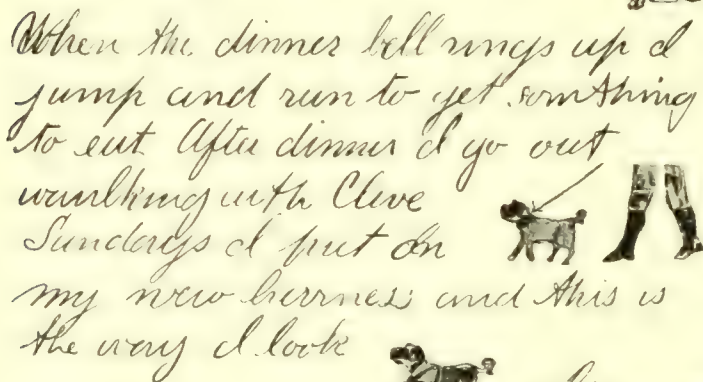 When the dinner bell rings up I
jump and run to get somthing
to eat. After dinner I go out
waulking with Cleve
Sundays I put on
my new herrnes and this is
the way I look